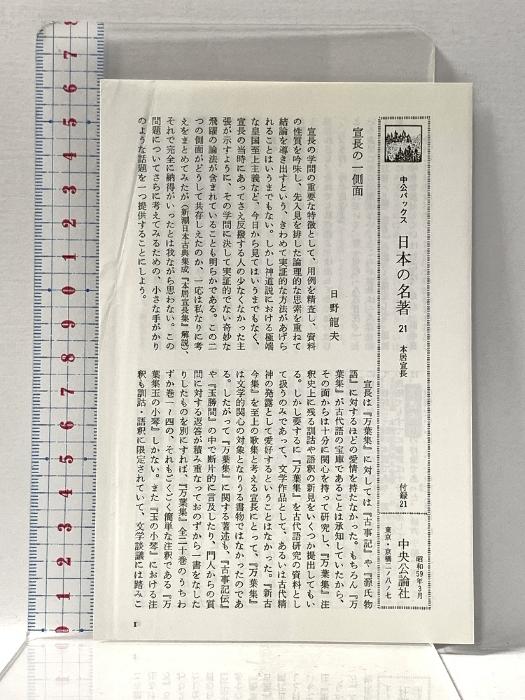 中公バックス 日本の名著 21 本居宣長
付録21
昭和59年3月
中央公論社
東京・京橋二ノ八ノ七
宣長の一側面
日野龍夫
宣長の学問の重要な特徴として、用例を精査し、資料
の性質を吟味し、先入見を排した論理的な思索を重ねて
結論を導き出すという、きわめて実証的な方法があげら
れることはいうまでもない。しかし神道説における極端
な皇国至上主義など、今日から見てはいうまでもなく、
宣長の当時にあってさえ反撥する人の少なくなかった主
張が示すように、その学問に決して実証的でない奇妙な
飛躍の論法が含まれていることも明らかである。この二
つの側面がどうして共存しえたのか、一応は私なりに考
えをまとめてみたが（新潮日本古典集成『本居宣長集』解説）、
それで完全に納得がいったとは我ながら思わない。この
問題についてさらに考えてみるための、小さな手がかり
のような話題を一つ提供することにしよう。
宣長は『万葉集』に対しては『古事記』や『源氏物
語』に対するほどの愛情を持たなかった。もちろん『万
葉集』が古代語の宝庫であることは承知していたから、
その面からは十分に関心を持って研究し、『万葉集』注
釈史上に残る訓詁や語釈の新見をいくつか提出してもい
る。しかし要するに『万葉集』を古代語研究の資料とし
て扱うのみであって、文学作品として、あるいは古代精
神の発露として愛好するということはなかった。『新古
今集』を至上の歌集と考える宣長にとって、『万葉集』
は文学的関心の対象となりうる書物ではなかったのであ
る。したがって『万葉集』に関する著述も、『古事記伝』
や『玉勝間』の中で断片的に言及したり、門人からの質
問に対する返答が積み重なっておのずから一書をなした
りしたものを別にすれば、『万葉集』全二十巻のうちわ
ずか巻一〜四の、それもごくごく簡単な注釈である『万
葉集玉の小琴』しかない。また『玉の小琴』における注
釈も訓詁・語釈に限定されていて、文学談議には踏みこ
1
7
6
5
4
3
2
1
0